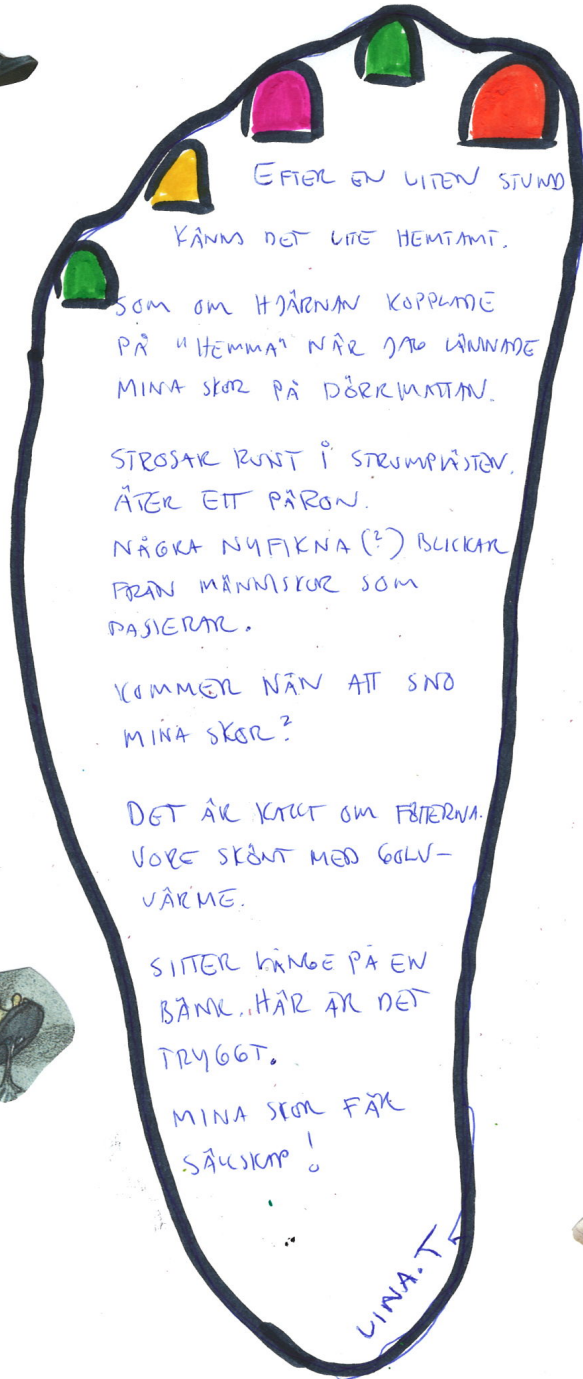 EFTER EN LITEN STUND
KÄNNS DET LITE HEMTAMT.
SOM OM HJÄRNAN KOPPLADE
PÅ "HEMMA" NÄR JAG LÄMNADE
MINA SKOR PÅ DÖRRMATTAN.
STROSAR RUNT I STRUMPLÄSTEN.
ÄTER ETT PÄRON.
NÅGRA NYFIKNA (?) BLICKAR
FRÅN MÄNNISKOR SOM
PASSERAR.
KOMMER NÅN ATT SNO
MINA SKOR?
DET ÄR KALLT OM FÖTTERNA.
VORE SKÖNT MED GOLV-
VÄRME.
SITTER LÄNGE PÅ EN
BÄNK. HÄR ÄR DET
TRYGGT.
MINA SKOR FÅR
SÄLLSKAP!
LINA.T